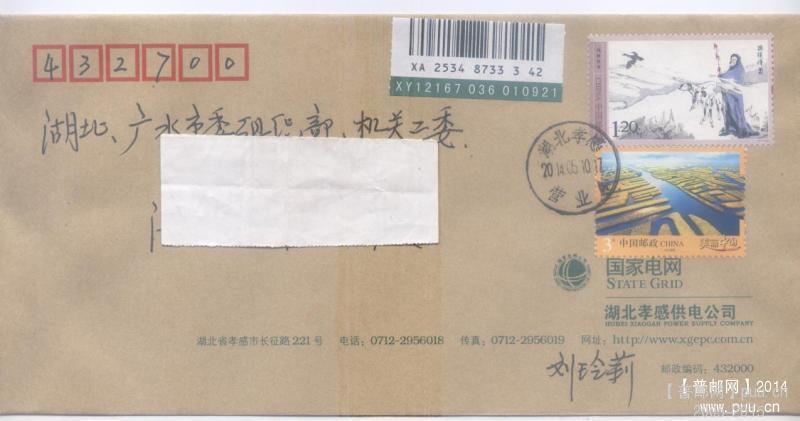 432700
XA 2534 8733 3 42
XY12167 036 010921
湖北、广水市委组织部、机关工委.
1.20
湖北孝感
2014.05.10.17
营业
3元
中国邮政 CHINA
美丽中国
国家电网
STATE GRID
湖北孝感供电公司
HUBEI XIAOGAN POWER SUPPLY COMPANY
湖北省孝感市长征路 221 号 电话：0712-2956018 传真：0712-2956019 网址：http://www.xgepc.com.cn
邮政编码：432000
刘玲莉
【普邮网】2014
www.puu.cn